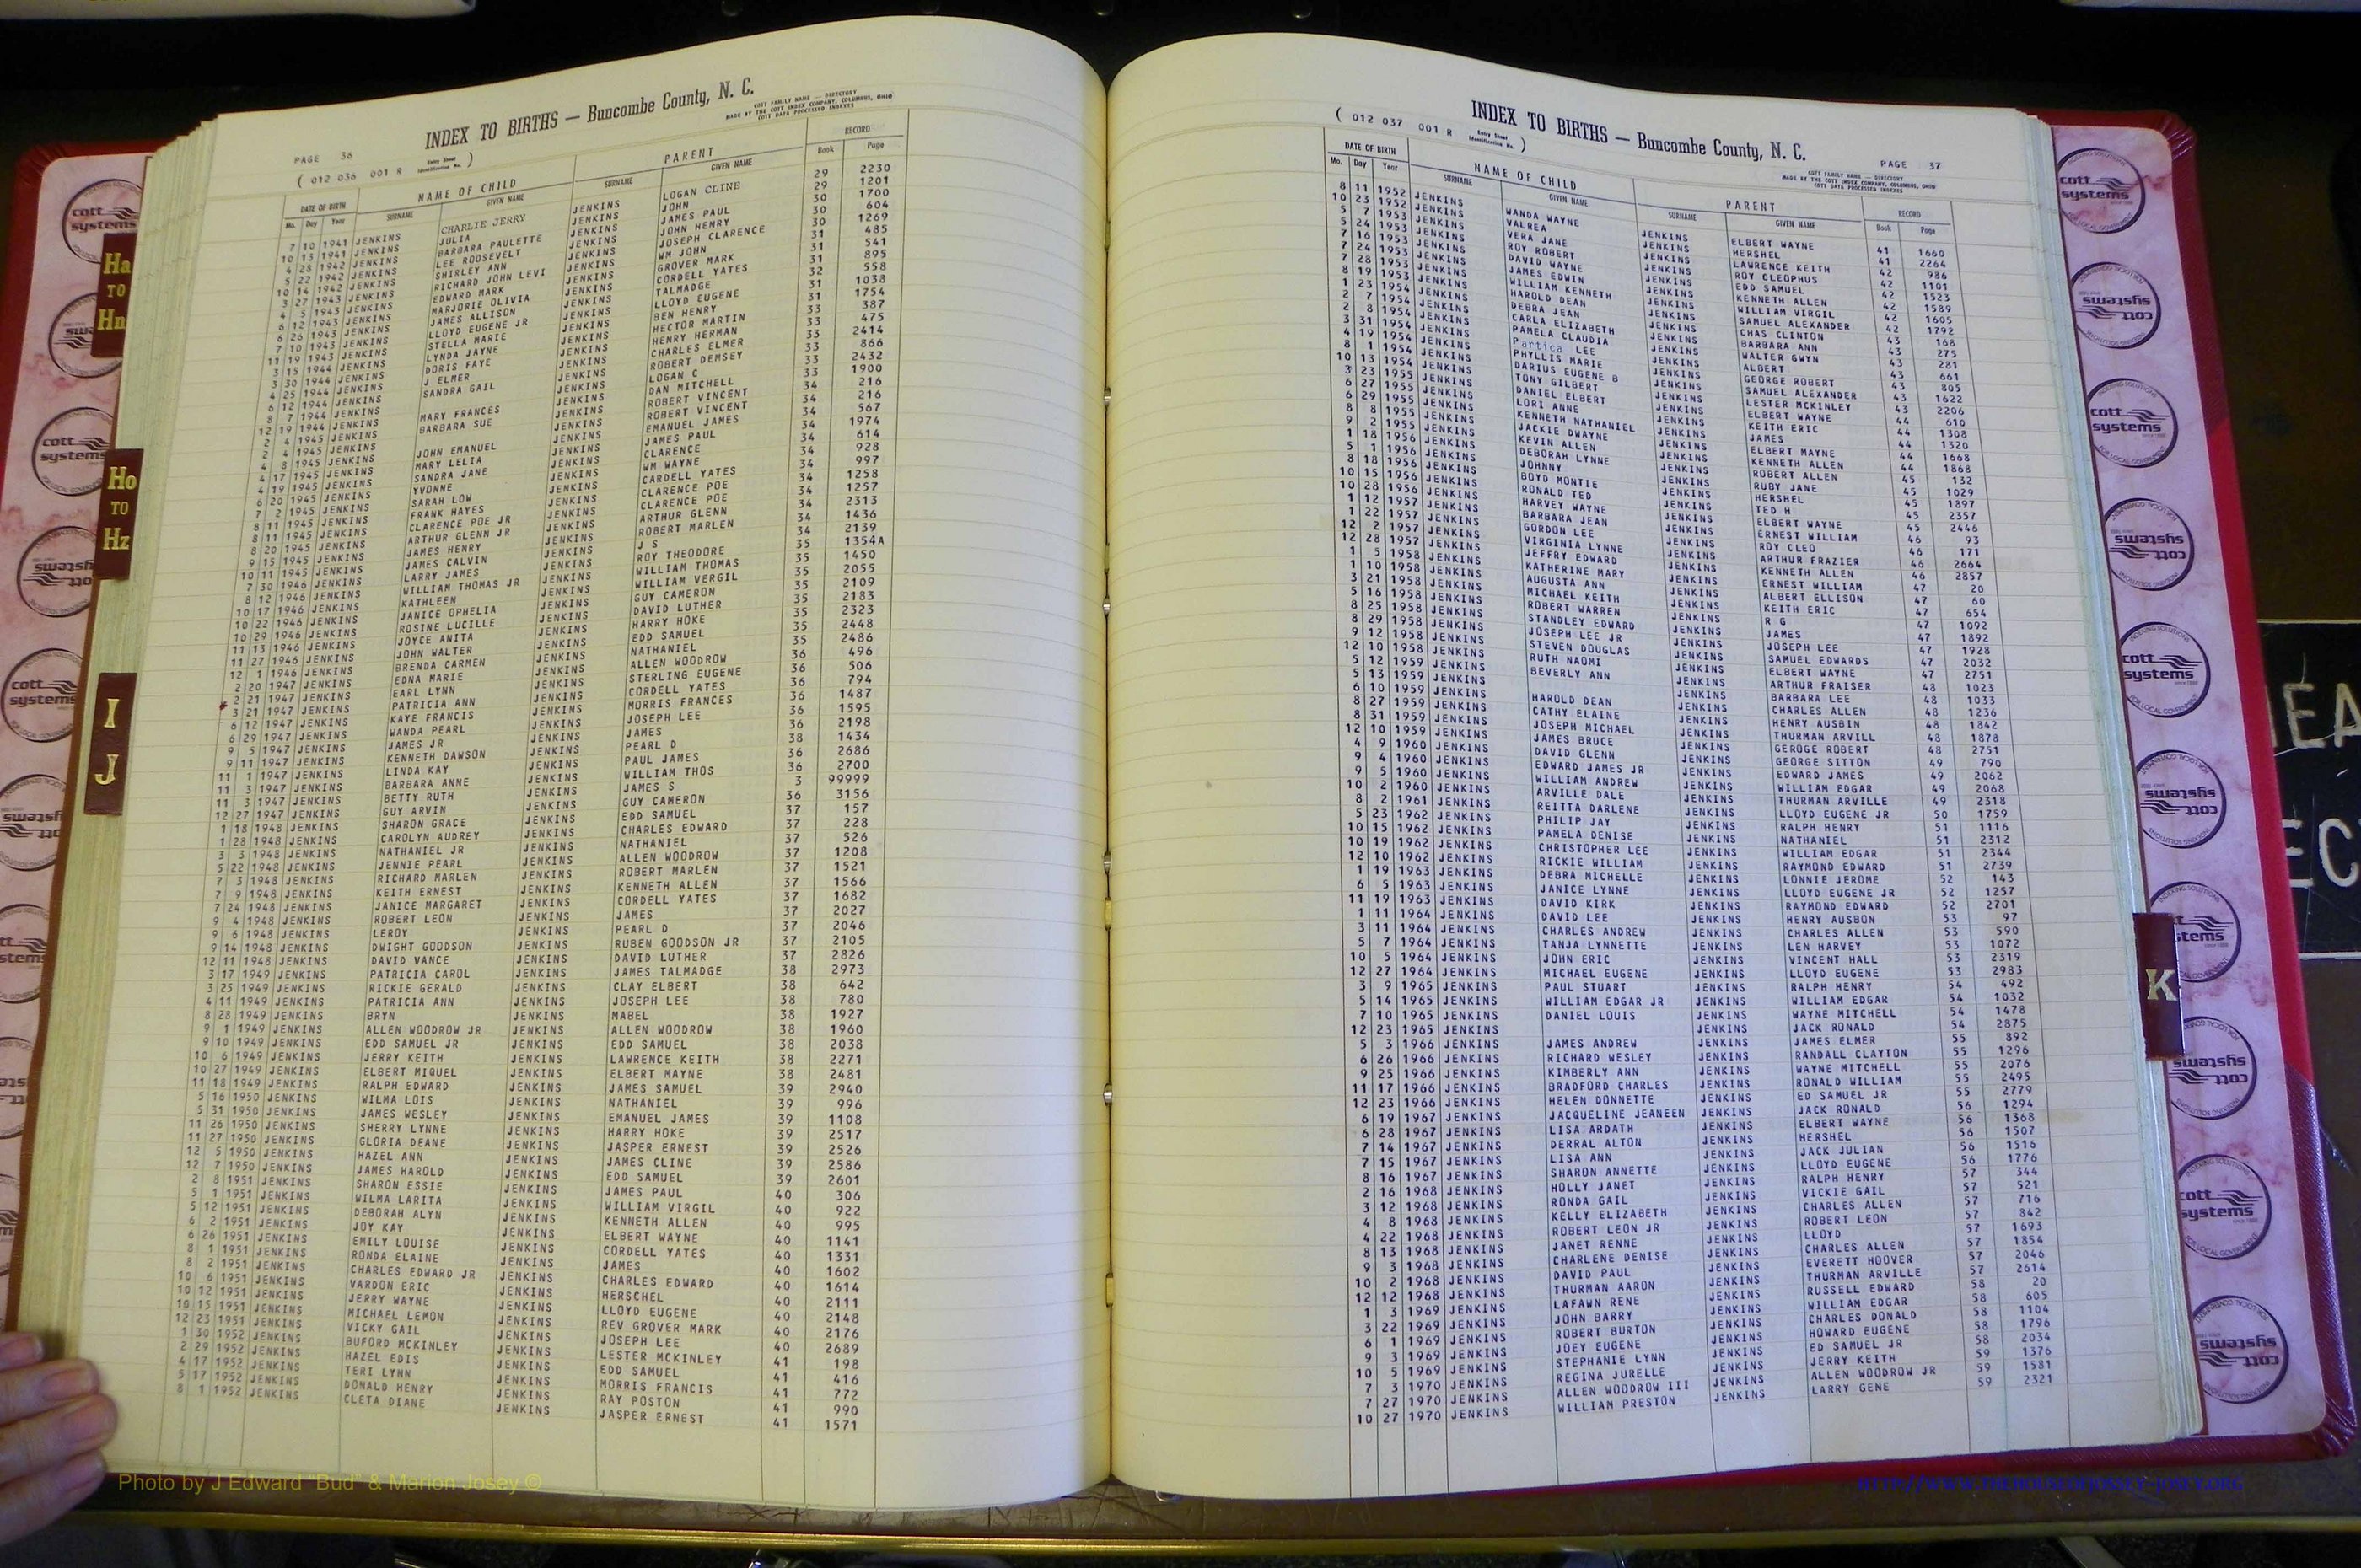 PAGE 36
INDEX TO BIRTHS — Buncombe County, N. C.
COTT FAMILY NAME — DIRECTORY
MADE BY THE COTT INDEX COMPANY, COLUMBUS, OHIO
COTT DATA PROCESSED INDEXES
( 012 036 001 R Entry Sheet Identification No. )
DATE OF BIRTH NAME OF CHILD PARENT RECORD
Mo. Day Year SURNAME GIVEN NAME SURNAME GIVEN NAME Book Page
7 10 1941 JENKINS CHARLIE JERRY JENKINS LOGAN CLINE 29 2230
10 13 1941 JENKINS JULIA JENKINS JOHN 29 1201
4 28 1942 JENKINS BARBARA PAULETTE JENKINS JAMES PAUL 30 1700
5 22 1942 JENKINS LEE ROOSEVELT JENKINS JOHN HENRY 30 604
10 14 1942 JENKINS SHIRLEY ANN JENKINS JOSEPH CLARENCE 30 1269
3 27 1943 JENKINS RICHARD JOHN LEVI JENKINS WM JOHN 31 485
4 5 1943 JENKINS EDWARD MARK JENKINS GROVER MARK 31 541
6 12 1943 JENKINS MARJORIE OLIVIA JENKINS CORDELL YATES 31 895
6 26 1943 JENKINS JAMES ALLISON JENKINS TALMADGE 32 558
7 10 1943 JENKINS LLOYD EUGENE JR JENKINS LLOYD EUGENE 31 1038
11 19 1943 JENKINS STELLA MARIE JENKINS BEN HENRY 31 1754
3 15 1944 JENKINS LYNDA JAYNE JENKINS HECTOR MARTIN 33 387
3 30 1944 JENKINS DORIS FAYE JENKINS HENRY HERMAN 33 475
4 25 1944 JENKINS J ELMER JENKINS CHARLES ELMER 33 2414
6 12 1944 JENKINS SANDRA GAIL JENKINS ROBERT DEMSEY 33 866
8 7 1944 JENKINS JENKINS LOGAN C 33 2432
12 19 1944 JENKINS MARY FRANCES JENKINS DAN MITCHELL 33 1900
2 4 1945 JENKINS BARBARA SUE JENKINS ROBERT VINCENT 34 216
2 4 1945 JENKINS JENKINS ROBERT VINCENT 34 216
4 8 1945 JENKINS JOHN EMANUEL JENKINS EMANUEL JAMES 34 567
4 17 1945 JENKINS MARY LELIA JENKINS JAMES PAUL 34 1974
4 19 1945 JENKINS SANDRA JANE JENKINS CLARENCE 34 614
6 20 1945 JENKINS YVONNE JENKINS WM WAYNE 34 928
7 2 1945 JENKINS SARAH LOW JENKINS CARDELL YATES 34 997
8 11 1945 JENKINS FRANK HAYES JENKINS CLARENCE POE 34 1258
8 11 1945 JENKINS CLARENCE POE JR JENKINS CLARENCE POE 34 1257
8 20 1945 JENKINS ARTHUR GLENN JR JENKINS ARTHUR GLENN 34 2313
9 15 1945 JENKINS JAMES HENRY JENKINS ROBERT MARLEN 34 1436
10 11 1945 JENKINS JAMES CALVIN JENKINS J S 34 2139
7 30 1946 JENKINS LARRY JAMES JENKINS ROY THEODORE 35 1354A
8 12 1946 JENKINS WILLIAM THOMAS JR JENKINS WILLIAM THOMAS 35 1450
10 17 1946 JENKINS KATHLEEN JENKINS WILLIAM VERGIL 35 2055
10 22 1946 JENKINS JANICE OPHELIA JENKINS GUY CAMERON 35 2109
10 29 1946 JENKINS ROSINE LUCILLE JENKINS DAVID LUTHER 35 2183
11 13 1946 JENKINS JOYCE ANITA JENKINS HARRY HOKE 35 2323
11 27 1946 JENKINS JOHN WALTER JENKINS EDD SAMUEL 35 2448
12 1 1946 JENKINS BRENDA CARMEN JENKINS NATHANIEL 35 2486
2 20 1947 JENKINS EDNA MARIE JENKINS ALLEN WOODROW 36 496
2 21 1947 JENKINS EARL LYNN JENKINS STERLING EUGENE 36 506
3 21 1947 JENKINS PATRICIA ANN JENKINS CORDELL YATES 36 794
6 12 1947 JENKINS KAYE FRANCIS JENKINS MORRIS FRANCES 36 1487
6 29 1947 JENKINS WANDA PEARL JENKINS JOSEPH LEE 36 1595
9 5 1947 JENKINS JAMES JR JENKINS JAMES 36 2198
9 11 1947 JENKINS KENNETH DAWSON JENKINS PEARL D 38 1434
11 1 1947 JENKINS LINDA KAY JENKINS PAUL JAMES 36 2686
11 3 1947 JENKINS BARBARA ANNE JENKINS WILLIAM THOS 36 2700
11 3 1947 JENKINS BETTY RUTH JENKINS JAMES S 3 99999
12 27 1947 JENKINS GUY ARVIN JENKINS GUY CAMERON 36 3156
1 18 1948 JENKINS SHARON GRACE JENKINS EDD SAMUEL 37 157
1 28 1948 JENKINS CAROLYN AUDREY JENKINS CHARLES EDWARD 37 228
3 3 1948 JENKINS NATHANIEL JR JENKINS NATHANIEL 37 526
5 22 1948 JENKINS JENNIE PEARL JENKINS ALLEN WOODROW 37 1208
7 3 1948 JENKINS RICHARD MARLEN JENKINS ROBERT MARLEN 37 1521
7 9 1948 JENKINS KEITH ERNEST JENKINS KENNETH ALLEN 37 1566
7 24 1948 JENKINS JANICE MARGARET JENKINS CORDELL YATES 37 1682
9 4 1948 JENKINS ROBERT LEON JENKINS JAMES 37 2027
9 6 1948 JENKINS LEROY JENKINS PEARL D 37 2046
9 14 1948 JENKINS DWIGHT GOODSON JENKINS RUBEN GOODSON JR 37 2105
12 11 1948 JENKINS DAVID VANCE JENKINS DAVID LUTHER 37 2826
3 17 1949 JENKINS PATRICIA CAROL JENKINS JAMES TALMADGE 38 2973
3 25 1949 JENKINS RICKIE GERALD JENKINS CLAY ELBERT 38 642
4 11 1949 JENKINS PATRICIA ANN JENKINS JOSEPH LEE 38 780
8 28 1949 JENKINS BRYN JENKINS MABEL 38 1927
9 1 1949 JENKINS ALLEN WOODROW JR JENKINS ALLEN WOODROW 38 1960
9 10 1949 JENKINS EDD SAMUEL JR JENKINS EDD SAMUEL 38 2038
10 6 1949 JENKINS JERRY KEITH JENKINS LAWRENCE KEITH 38 2271
10 27 1949 JENKINS ELBERT MIQUEL JENKINS ELBERT MAYNE 38 2481
11 18 1949 JENKINS RALPH EDWARD JENKINS JAMES SAMUEL 39 2940
5 16 1950 JENKINS WILMA LOIS JENKINS NATHANIEL 39 996
5 31 1950 JENKINS JAMES WESLEY JENKINS EMANUEL JAMES 39 1108
11 26 1950 JENKINS SHERRY LYNNE JENKINS HARRY HOKE 39 2517
11 27 1950 JENKINS GLORIA DEANE JENKINS JASPER ERNEST 39 2526
12 5 1950 JENKINS HAZEL ANN JENKINS JAMES CLINE 39 2586
12 7 1950 JENKINS JAMES HAROLD JENKINS EDD SAMUEL 39 2601
2 8 1951 JENKINS SHARON ESSIE JENKINS JAMES PAUL 40 306
5 1 1951 JENKINS WILMA LARITA JENKINS WILLIAM VIRGIL 40 922
5 12 1951 JENKINS DEBORAH ALYN JENKINS KENNETH ALLEN 40 995
6 2 1951 JENKINS JOY KAY JENKINS ELBERT WAYNE 40 1141
6 26 1951 JENKINS EMILY LOUISE JENKINS CORDELL YATES 40 1331
8 1 1951 JENKINS RONDA ELAINE JENKINS JAMES 40 1602
8 2 1951 JENKINS CHARLES EDWARD JR JENKINS CHARLES EDWARD 40 1614
10 6 1951 JENKINS VARDON ERIC JENKINS HERSCHEL 40 2111
10 12 1951 JENKINS JERRY WAYNE JENKINS LLOYD EUGENE 40 2148
10 15 1951 JENKINS MICHAEL LEMON JENKINS REV GROVER MARK 40 2176
12 23 1951 JENKINS VICKY GAIL JENKINS JOSEPH LEE 40 2689
1 30 1952 JENKINS BUFORD MCKINLEY JENKINS LESTER MCKINLEY 41 198
2 29 1952 JENKINS HAZEL EDIS JENKINS EDD SAMUEL 41 416
4 17 1952 JENKINS TERI LYNN JENKINS MORRIS FRANCIS 41 772
5 17 1952 JENKINS DONALD HENRY JENKINS RAY POSTON 41 990
8 1 1952 JENKINS CLETA DIANE JENKINS JASPER ERNEST 41 1571
( 012 037 001 R Entry Sheet Identification No. )
INDEX TO BIRTHS — Buncombe County, N. C.
PAGE 37
COTT FAMILY NAME — DIRECTORY
MADE BY THE COTT INDEX COMPANY, COLUMBUS, OHIO
COTT DATA PROCESSED INDEXES
DATE OF BIRTH NAME OF CHILD PARENT RECORD
Mo. Day Year SURNAME GIVEN NAME SURNAME GIVEN NAME Book Page
8 11 1952 JENKINS WANDA WAYNE JENKINS ELBERT WAYNE 41 1660
10 23 1952 JENKINS VALREA JENKINS HERSHEL 41 2264
5 7 1953 JENKINS VERA JANE JENKINS LAWRENCE KEITH 42 986
5 24 1953 JENKINS ROY ROBERT JENKINS ROY CLEOPHUS 42 1101
7 16 1953 JENKINS DAVID WAYNE JENKINS EDD SAMUEL 42 1523
7 24 1953 JENKINS JAMES EDWIN JENKINS KENNETH ALLEN 42 1589
7 28 1953 JENKINS WILLIAM KENNETH JENKINS WILLIAM VIRGIL 42 1605
8 19 1953 JENKINS HAROLD DEAN JENKINS SAMUEL ALEXANDER 42 1792
1 23 1954 JENKINS DEBRA JEAN JENKINS CHAS CLINTON 43 168
2 7 1954 JENKINS CARLA ELIZABETH JENKINS BARBARA ANN 43 275
2 8 1954 JENKINS PAMELA CLAUDIA JENKINS WALTER GWYN 43 281
3 31 1954 JENKINS Partica LEE JENKINS ALBERT 43 661
4 19 1954 JENKINS PHYLLIS MARIE JENKINS GEORGE ROBERT 43 805
8 1 1954 JENKINS DARIUS EUGENE B JENKINS SAMUEL ALEXANDER 43 1622
10 13 1954 JENKINS TONY GILBERT JENKINS LESTER MCKINLEY 43 2206
3 23 1955 JENKINS DANIEL ELBERT JENKINS ELBERT WAYNE 44 610
6 27 1955 JENKINS LORI ANNE JENKINS KEITH ERIC 44 1308
6 29 1955 JENKINS KENNETH NATHANIEL JENKINS JAMES 44 1320
8 8 1955 JENKINS JACKIE DWAYNE JENKINS ELBERT MAYNE 44 1668
9 2 1955 JENKINS KEVIN ALLEN JENKINS KENNETH ALLEN 44 1868
1 18 1956 JENKINS DEBORAH LYNNE JENKINS ROBERT ALLEN 45 132
5 1 1956 JENKINS JOHNNY JENKINS RUBY JANE 45 1029
8 18 1956 JENKINS BOYD MONTIE JENKINS HERSHEL 45 1897
10 15 1956 JENKINS RONALD TED JENKINS TED H 45 2357
10 28 1956 JENKINS HARVEY WAYNE JENKINS ELBERT WAYNE 45 2446
1 12 1957 JENKINS BARBARA JEAN JENKINS ERNEST WILLIAM 46 93
1 22 1957 JENKINS GORDON LEE JENKINS ROY CLEO 46 171
12 2 1957 JENKINS VIRGINIA LYNNE JENKINS ARTHUR FRAZIER 46 2664
12 28 1957 JENKINS JEFFRY EDWARD JENKINS KENNETH ALLEN 46 2857
1 5 1958 JENKINS KATHERINE MARY JENKINS ERNEST WILLIAM 47 20
1 10 1958 JENKINS AUGUSTA ANN JENKINS ALBERT ELLISON 47 60
3 21 1958 JENKINS MICHAEL KEITH JENKINS KEITH ERIC 47 654
5 16 1958 JENKINS ROBERT WARREN JENKINS R G 47 1092
8 25 1958 JENKINS STANDLEY EDWARD JENKINS JAMES 47 1892
8 29 1958 JENKINS JOSEPH LEE JR JENKINS JOSEPH LEE 47 1928
9 12 1958 JENKINS STEVEN DOUGLAS JENKINS SAMUEL EDWARDS 47 2032
12 10 1958 JENKINS RUTH NAOMI JENKINS ELBERT WAYNE 47 2751
5 12 1959 JENKINS BEVERLY ANN JENKINS ARTHUR FRAISER 48 1023
5 13 1959 JENKINS JENKINS BARBARA LEE 48 1033
6 10 1959 JENKINS HAROLD DEAN JENKINS CHARLES ALLEN 48 1236
8 27 1959 JENKINS CATHY ELAINE JENKINS HENRY AUSBIN 48 1842
8 31 1959 JENKINS JOSEPH MICHAEL JENKINS THURMAN ARVILL 48 1878
12 10 1959 JENKINS JAMES BRUCE JENKINS GEROGE ROBERT 48 2751
4 9 1960 JENKINS DAVID GLENN JENKINS GEORGE SITTON 49 790
9 4 1960 JENKINS EDWARD JAMES JR JENKINS EDWARD JAMES 49 2062
9 5 1960 JENKINS WILLIAM ANDREW JENKINS WILLIAM EDGAR 49 2068
10 2 1960 JENKINS ARVILLE DALE JENKINS THURMAN ARVILLE 49 2318
8 2 1961 JENKINS REITTA DARLENE JENKINS LLOYD EUGENE JR 50 1759
5 23 1962 JENKINS PHILIP JAY JENKINS RALPH HENRY 51 1116
10 15 1962 JENKINS PAMELA DENISE JENKINS NATHANIEL 51 2312
10 19 1962 JENKINS CHRISTOPHER LEE JENKINS WILLIAM EDGAR 51 2344
12 10 1962 JENKINS RICKIE WILLIAM JENKINS RAYMOND EDWARD 51 2739
1 19 1963 JENKINS DEBRA MICHELLE JENKINS LONNIE JEROME 52 143
6 5 1963 JENKINS JANICE LYNNE JENKINS LLOYD EUGENE JR 52 1257
11 19 1963 JENKINS DAVID KIRK JENKINS RAYMOND EDWARD 52 2701
1 11 1964 JENKINS DAVID LEE JENKINS HENRY AUSBON 53 97
3 11 1964 JENKINS CHARLES ANDREW JENKINS CHARLES ALLEN 53 590
5 7 1964 JENKINS TANJA LYNNETTE JENKINS LEN HARVEY 53 1072
10 5 1964 JENKINS JOHN ERIC JENKINS VINCENT HALL 53 2319
12 27 1964 JENKINS MICHAEL EUGENE JENKINS LLOYD EUGENE 53 2983
3 9 1965 JENKINS PAUL STUART JENKINS RALPH HENRY 54 492
5 14 1965 JENKINS WILLIAM EDGAR JR JENKINS WILLIAM EDGAR 54 1032
7 10 1965 JENKINS DANIEL LOUIS JENKINS WAYNE MITCHELL 54 1478
12 23 1965 JENKINS JENKINS JACK RONALD 54 2875
5 3 1966 JENKINS JAMES ANDREW JENKINS JAMES ELMER 55 892
6 26 1966 JENKINS RICHARD WESLEY JENKINS RANDALL CLAYTON 55 1296
9 25 1966 JENKINS KIMBERLY ANN JENKINS WAYNE MITCHELL 55 2076
11 17 1966 JENKINS BRADFORD CHARLES JENKINS RONALD WILLIAM 55 2495
12 23 1966 JENKINS HELEN DONNETTE JENKINS ED SAMUEL JR 55 2779
6 19 1967 JENKINS JACQUELINE JEANEEN JENKINS JACK RONALD 56 1294
6 28 1967 JENKINS LISA ARDATH JENKINS ELBERT WAYNE 56 1368
7 14 1967 JENKINS DERRAL ALTON JENKINS HERSHEL 56 1507
7 15 1967 JENKINS LISA ANN JENKINS JACK JULIAN 56 1516
8 16 1967 JENKINS SHARON ANNETTE JENKINS LLOYD EUGENE 56 1776
2 16 1968 JENKINS HOLLY JANET JENKINS RALPH HENRY 57 344
3 12 1968 JENKINS RONDA GAIL JENKINS VICKIE GAIL 57 521
4 8 1968 JENKINS KELLY ELIZABETH JENKINS CHARLES ALLEN 57 716
4 22 1968 JENKINS ROBERT LEON JR JENKINS ROBERT LEON 57 842
8 13 1968 JENKINS JANET RENNE JENKINS LLOYD 57 1693
9 3 1968 JENKINS CHARLENE DENISE JENKINS CHARLES ALLEN 57 1854
10 2 1968 JENKINS DAVID PAUL JENKINS EVERETT HOOVER 57 2046
12 12 1968 JENKINS THURMAN AARON JENKINS THURMAN ARVILLE 57 2614
1 3 1969 JENKINS LAFAWN RENE JENKINS RUSSELL EDWARD 58 20
3 22 1969 JENKINS JOHN BARRY JENKINS WILLIAM EDGAR 58 605
6 1 1969 JENKINS ROBERT BURTON JENKINS CHARLES DONALD 58 1104
9 3 1969 JENKINS JOEY EUGENE JENKINS HOWARD EUGENE 58 1796
10 5 1969 JENKINS STEPHANIE LYNN JENKINS ED SAMUEL JR 58 2034
7 3 1970 JENKINS REGINA JURELLE JENKINS JERRY KEITH 59 1376
7 27 1970 JENKINS ALLEN WOODROW III JENKINS ALLEN WOODROW JR 59 1581
10 27 1970 JENKINS WILLIAM PRESTON JENKINS LARRY GENE 59 2321
Ha TO Hn
Ho TO Hz
I J
K
cott systems
INDEXING SOLUTIONS
FOR LOCAL GOVERNMENT
Photo by J Edward "Bud" & Marion Josey ©
HTTP://WWW.THEHOUSEOFJOSSEY-JOSEY.ORG